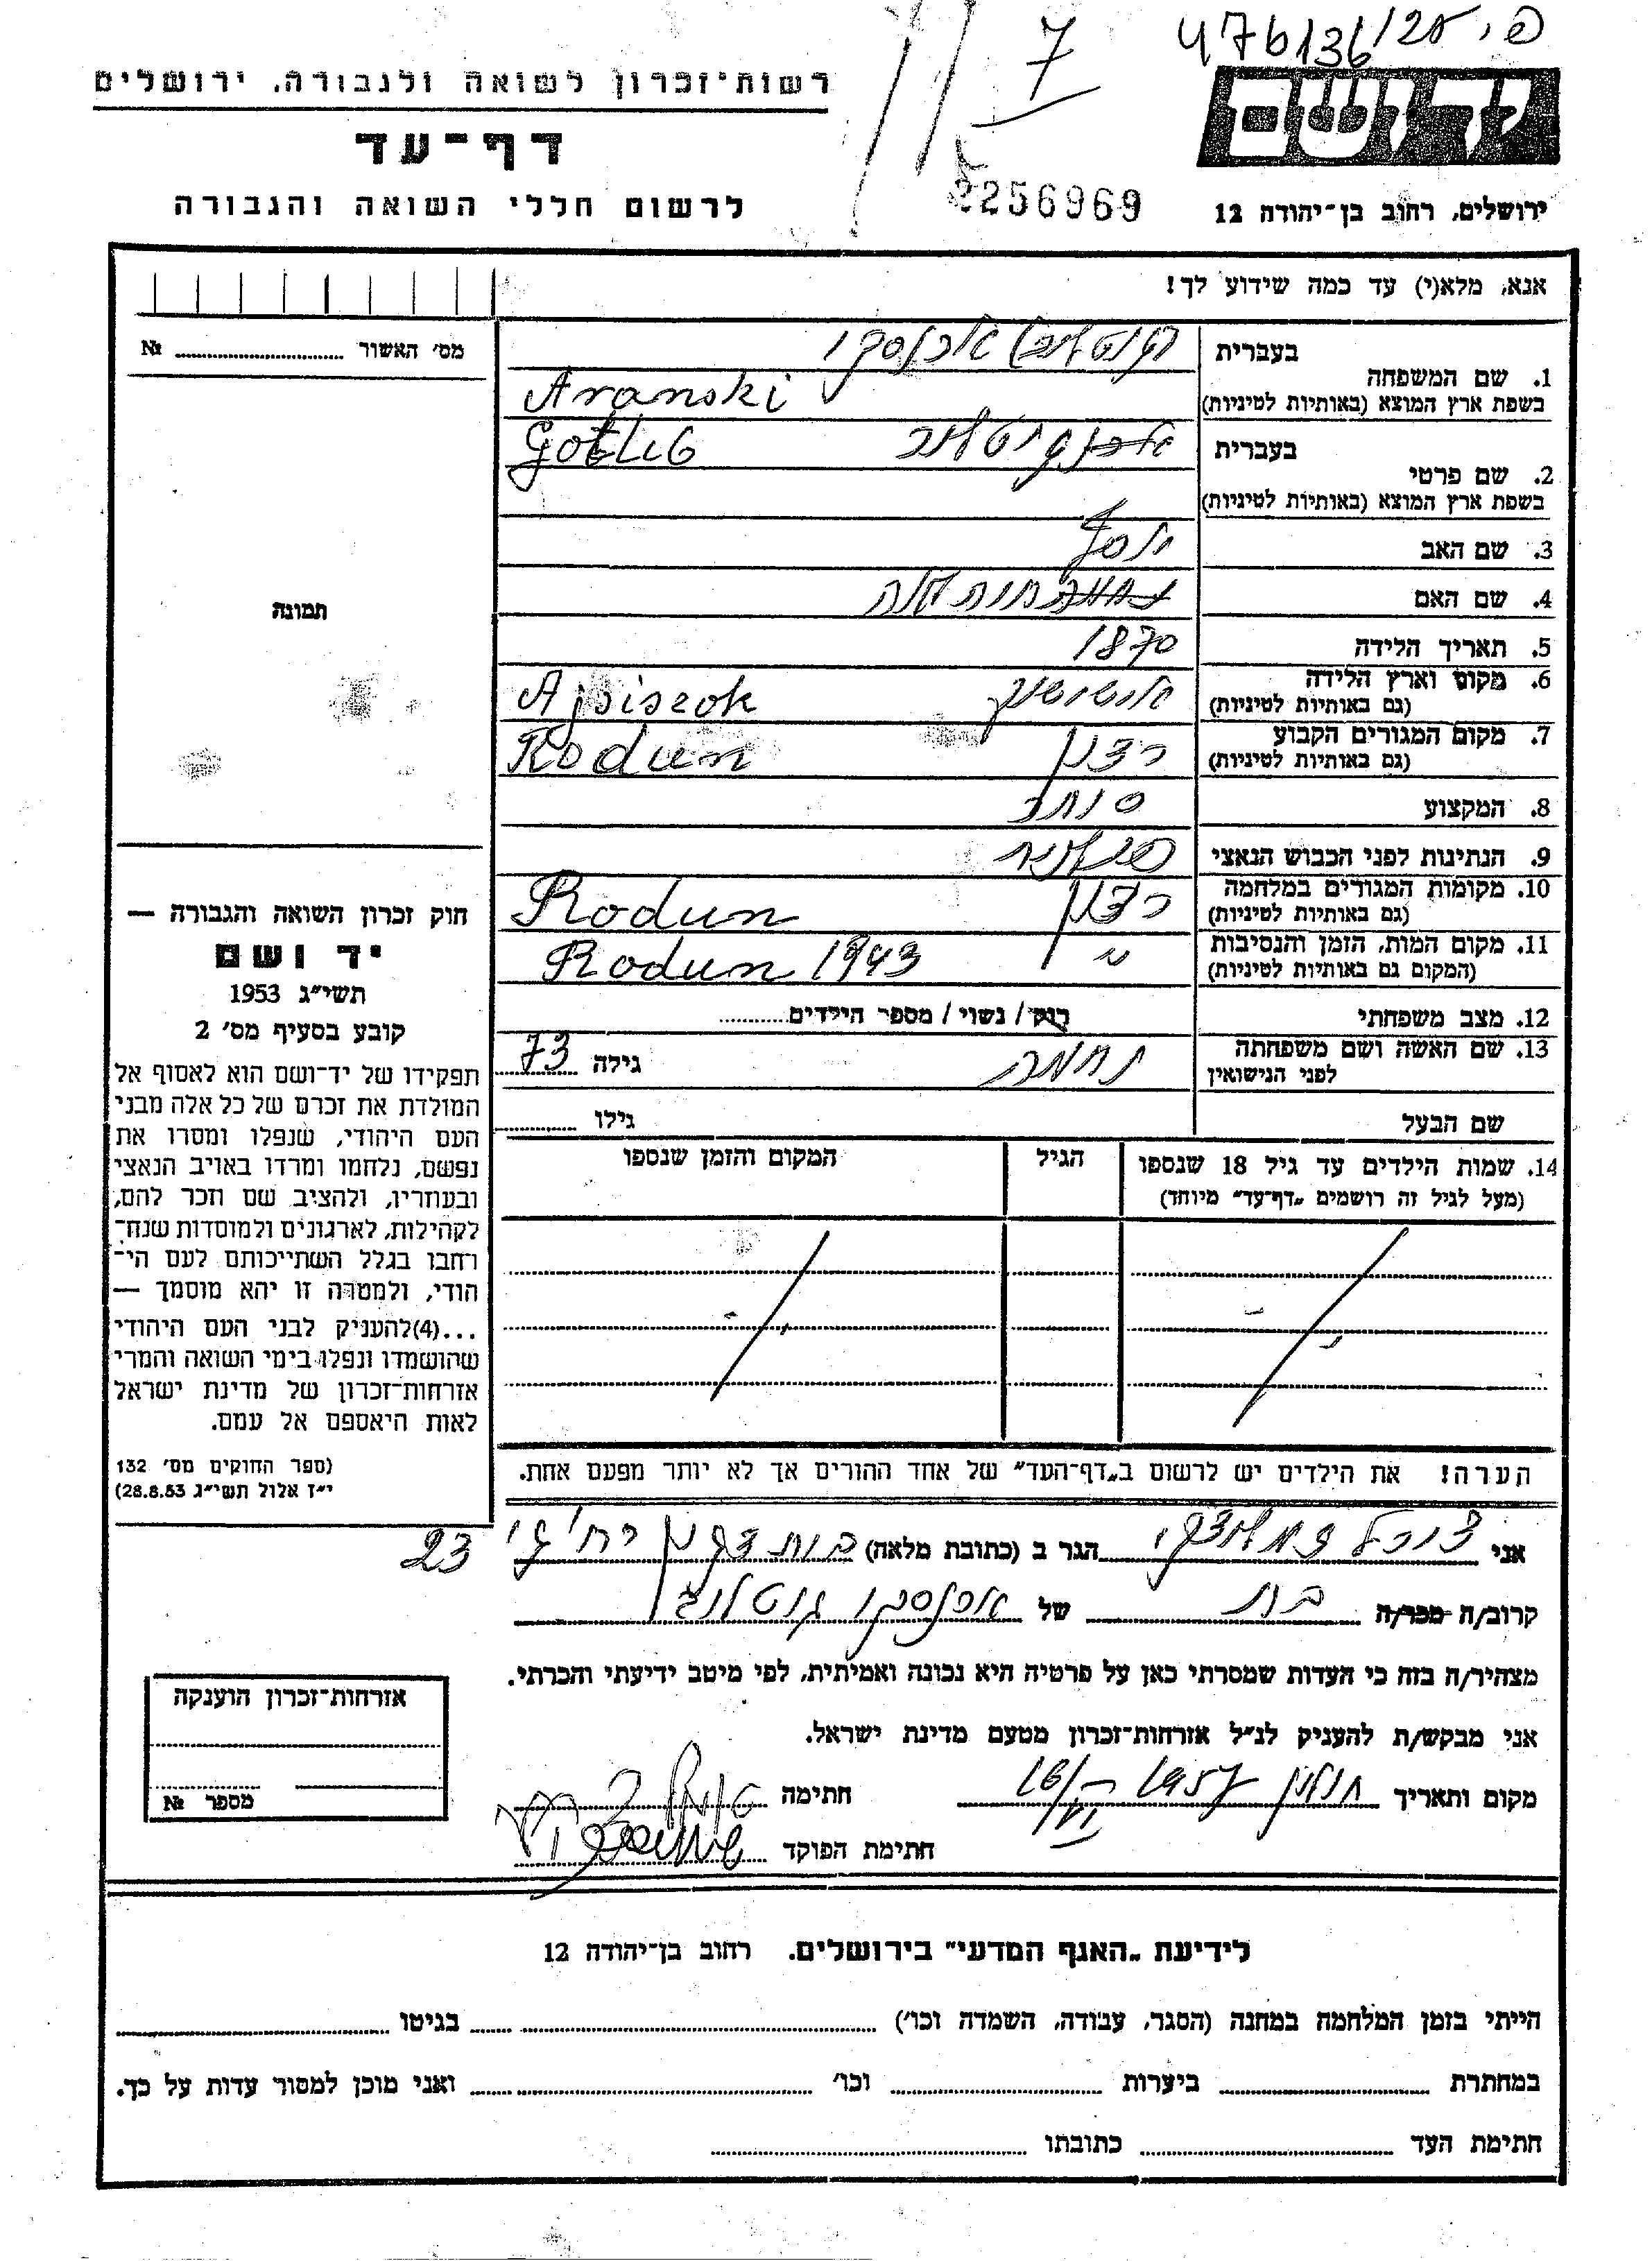 פ.י. 25/476136
7
רשות־זכרון לשואה ולגבורה, ירושלים
דף־עד
לרשום חללי השואה והגבורה
2256969
יד ושם
ירושלים, רחוב בן־יהודה 12
אנא, מלא(י) עד כמה שידוע לך!
מס׳ האשור №
תמונה
חוק זכרון השואה והגבורה —
יד ושם
תשי״ג 1953
קובע בסעיף מס׳ 2
תפקידו של יד־ושם הוא לאסוף אל
המולדת את זכרם של כל אלה מבני
העם היהודי, שנפלו ומסרו את
נפשם, נלחמו ומרדו באויב הנאצי
ובעוזריו, ולהציב שם וזכר להם,
לקהילות, לארגונים ולמוסדות שנח־
רחבו בגלל השתייכותם לעם הי־
הודי, ולמטרה זו יהא מוסמך —
...(4)להעניק לבני העם היהודי
שהושמדו ונפלו בימי השואה והמרי
אזרחות־זכרון של מדינת ישראל
לאות היאספם אל עמם.
(ספר החוקים מס׳ 132
י״ז אלול תשי״ג 28.8.53)
בעברית ארנסקי
1. שם המשפחה
בשפת ארץ המוצא (באותיות לטיניות) Aranski
בעברית גוטליב Gotlib
2. שם פרטי
בשפת ארץ המוצא (באותיות לטיניות)
3. שם האב יוסף
4. שם האם
5. תאריך הלידה 1870
6. מקום וארץ הלידה אישישוק Ajsiszok
(גם באותיות לטיניות)
7. מקום המגורים הקבוע רדון Rodun
(גם באותיות לטיניות)
8. המקצוע סוחר
9. הנתינות לפני הכבוש הנאצי
10. מקומות המגורים במלחמה רדון Rodun
(גם באותיות לטיניות)
11. מקום המות, הזמן והנסיבות " Rodun 1943
(המקום גם באותיות לטיניות)
12. מצב משפחתי רוק / נשוי / מספר הילדים
13. שם האשה ושם משפחתה נחמה גילה 73
לפני הנישואין
שם הבעל גילו
14. שמות הילדים עד גיל 18 שנספו הגיל המקום והזמן שנספו
(מעל לגיל זה רושמים „דף־עד״ מיוחד)
הערה! את הילדים יש לרשום ב„דף־העד״ של אחד ההורים אך לא יותר מפעם אחת.
אני הגר ב (כתובת מלאה) 23
קרוב/ה מכר/ה בת של ארנסקי גוטליב
מצהיר/ה בזה כי העדות שמסרתי כאן על פרטיה היא נכונה ואמיתית, לפי מיטב ידיעתי והכרתי.
אני מבקש/ת להעניק לנ״ל אזרחות־זכרון מטעם מדינת ישראל.
מקום ותאריך חולון 1957 חתימה
חתימת הפוקד
אזרחות־זכרון הוענקה
מספר №
לידיעת „האגף המדעי״ בירושלים. רחוב בן־יהודה 12
הייתי בזמן המלחמה במחנה (הסגר, עבודה, השמדה וכו׳) בגיטו
במחתרת ביערות וכו׳ ואני מוכן למסור עדות על כך.
חתימת העד כתובתו